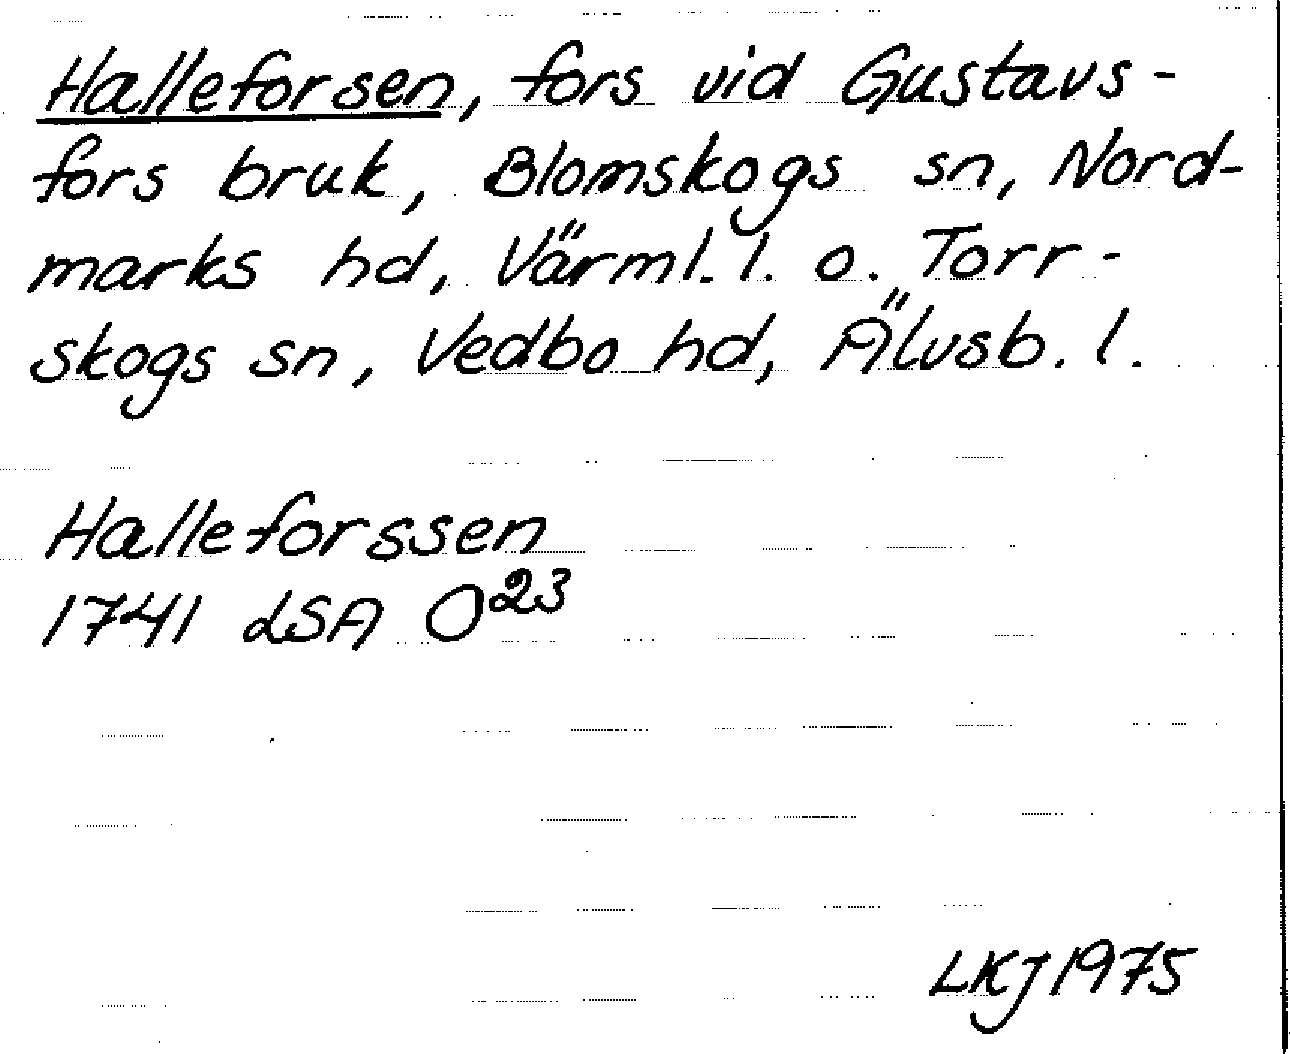 Halleforsen, fors vid Gustavs-
fors bruk, Blomskogs sn, Nord-
marks hd, Värml. l. o. Torr-
skogs sn, Vedbo hd, Älvsb. l.
Halleforssen
1741 LSA O23
LKJ 1975